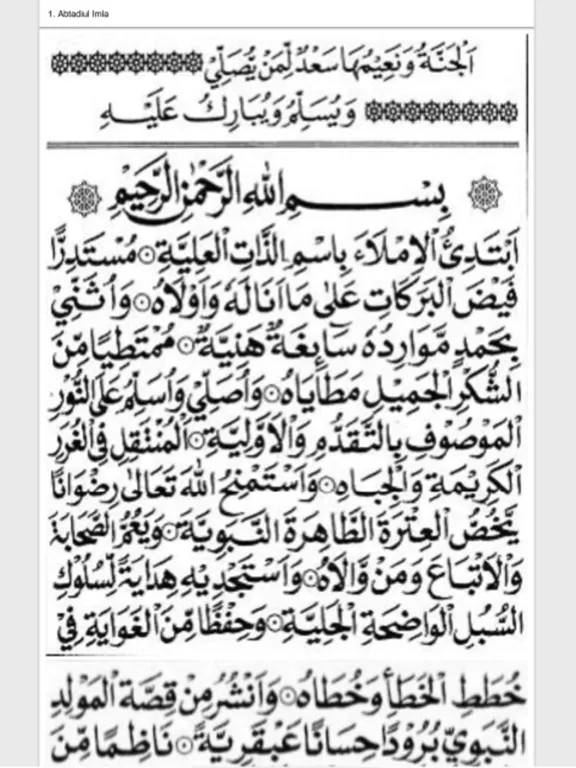 1. Abtadiul Imla
اَلْجَنَّةُ وَنَعِيْمُهَا سَعْدٌ لِّمَنْ يُّصَلِّيْ
وَيُسَلِّمُ وَيُبَارِكُ عَلَيْهِ
بِسْمِ اللهِ الرَّحْمٰنِ الرَّحِيْمِ
اَبْتَدِئُ الْاِمْلَاءَ بِاسْمِ الذَّاتِ الْعَلِيَّةِ ۞ مُسْتَدِرًّا
فَيْضَ الْبَرَكَاتِ عَلٰى مَا اَنَالَهٗ وَاَوْلَاهُ ۞ وَاُثَنِّيْ
بِحَمْدٍ مَّوَارِدُهٗ سَآئِغَةٌ هَنِيَّةٌ ۞ مُمْتَطِيًا مِّنَ
الشُّكْرِ الْجَمِيْلِ مَطَايَاهُ ۞ وَاُصَلِّيْ وَاُسَلِّمُ عَلَى النُّوْرِ
الْمَوْصُوْفِ بِالتَّقَدُّمِ وَالْاَوَّلِيَّةِ ۞ الْمُنْتَقِلِ فِي الْغُرَرِ
الْكَرِيْمَةِ وَالْجِبَاهِ ۞ وَاَسْتَمْنِحُ اللهَ تَعَالٰى رِضْوَانًا
يَّخُصُّ الْعِتْرَةَ الطَّاهِرَةَ النَّبَوِيَّةَ ۞ وَيَعُمُّ الصَّحَابَةَ
وَالْاَتْبَاعَ وَمَنْ وَّالَاهُ ۞ وَاَسْتَجْدِيْهِ هِدَايَةً لِّسُلُوْكِ
السُّبُلِ الْوَاضِحَةِ الْجَلِيَّةِ ۞ وَحِفْظًا مِّنَ الْغَوَايَةِ فِيْ
خُطَطِ الْخَطَأِ وَخُطَاهُ ۞ وَاَنْشُرُ مِنْ قِصَّةِ الْمَوْلِدِ
النَّبَوِيِّ بُرُوْدًا حِسَانًا عَبْقَرِيَّةً ۞ نَاظِمًا مِّنَ